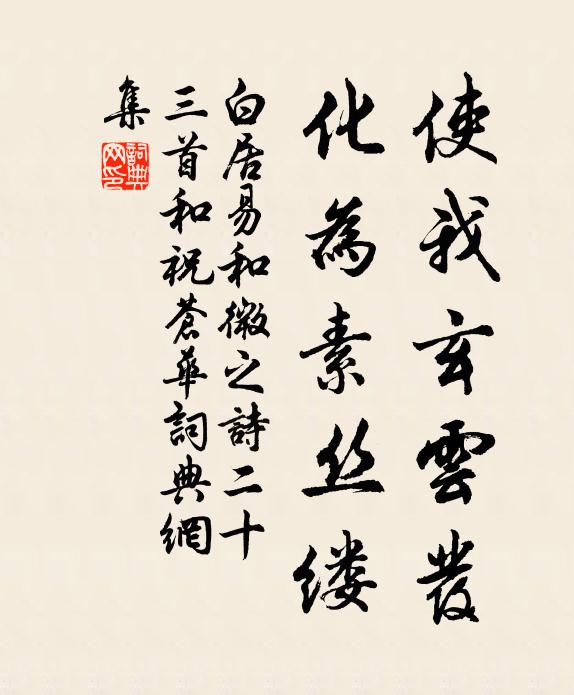 使我玄雲发
化為素丝缕
白居易和微之詩二十
三首和祝蒼華詞典網
集
詞典
网印